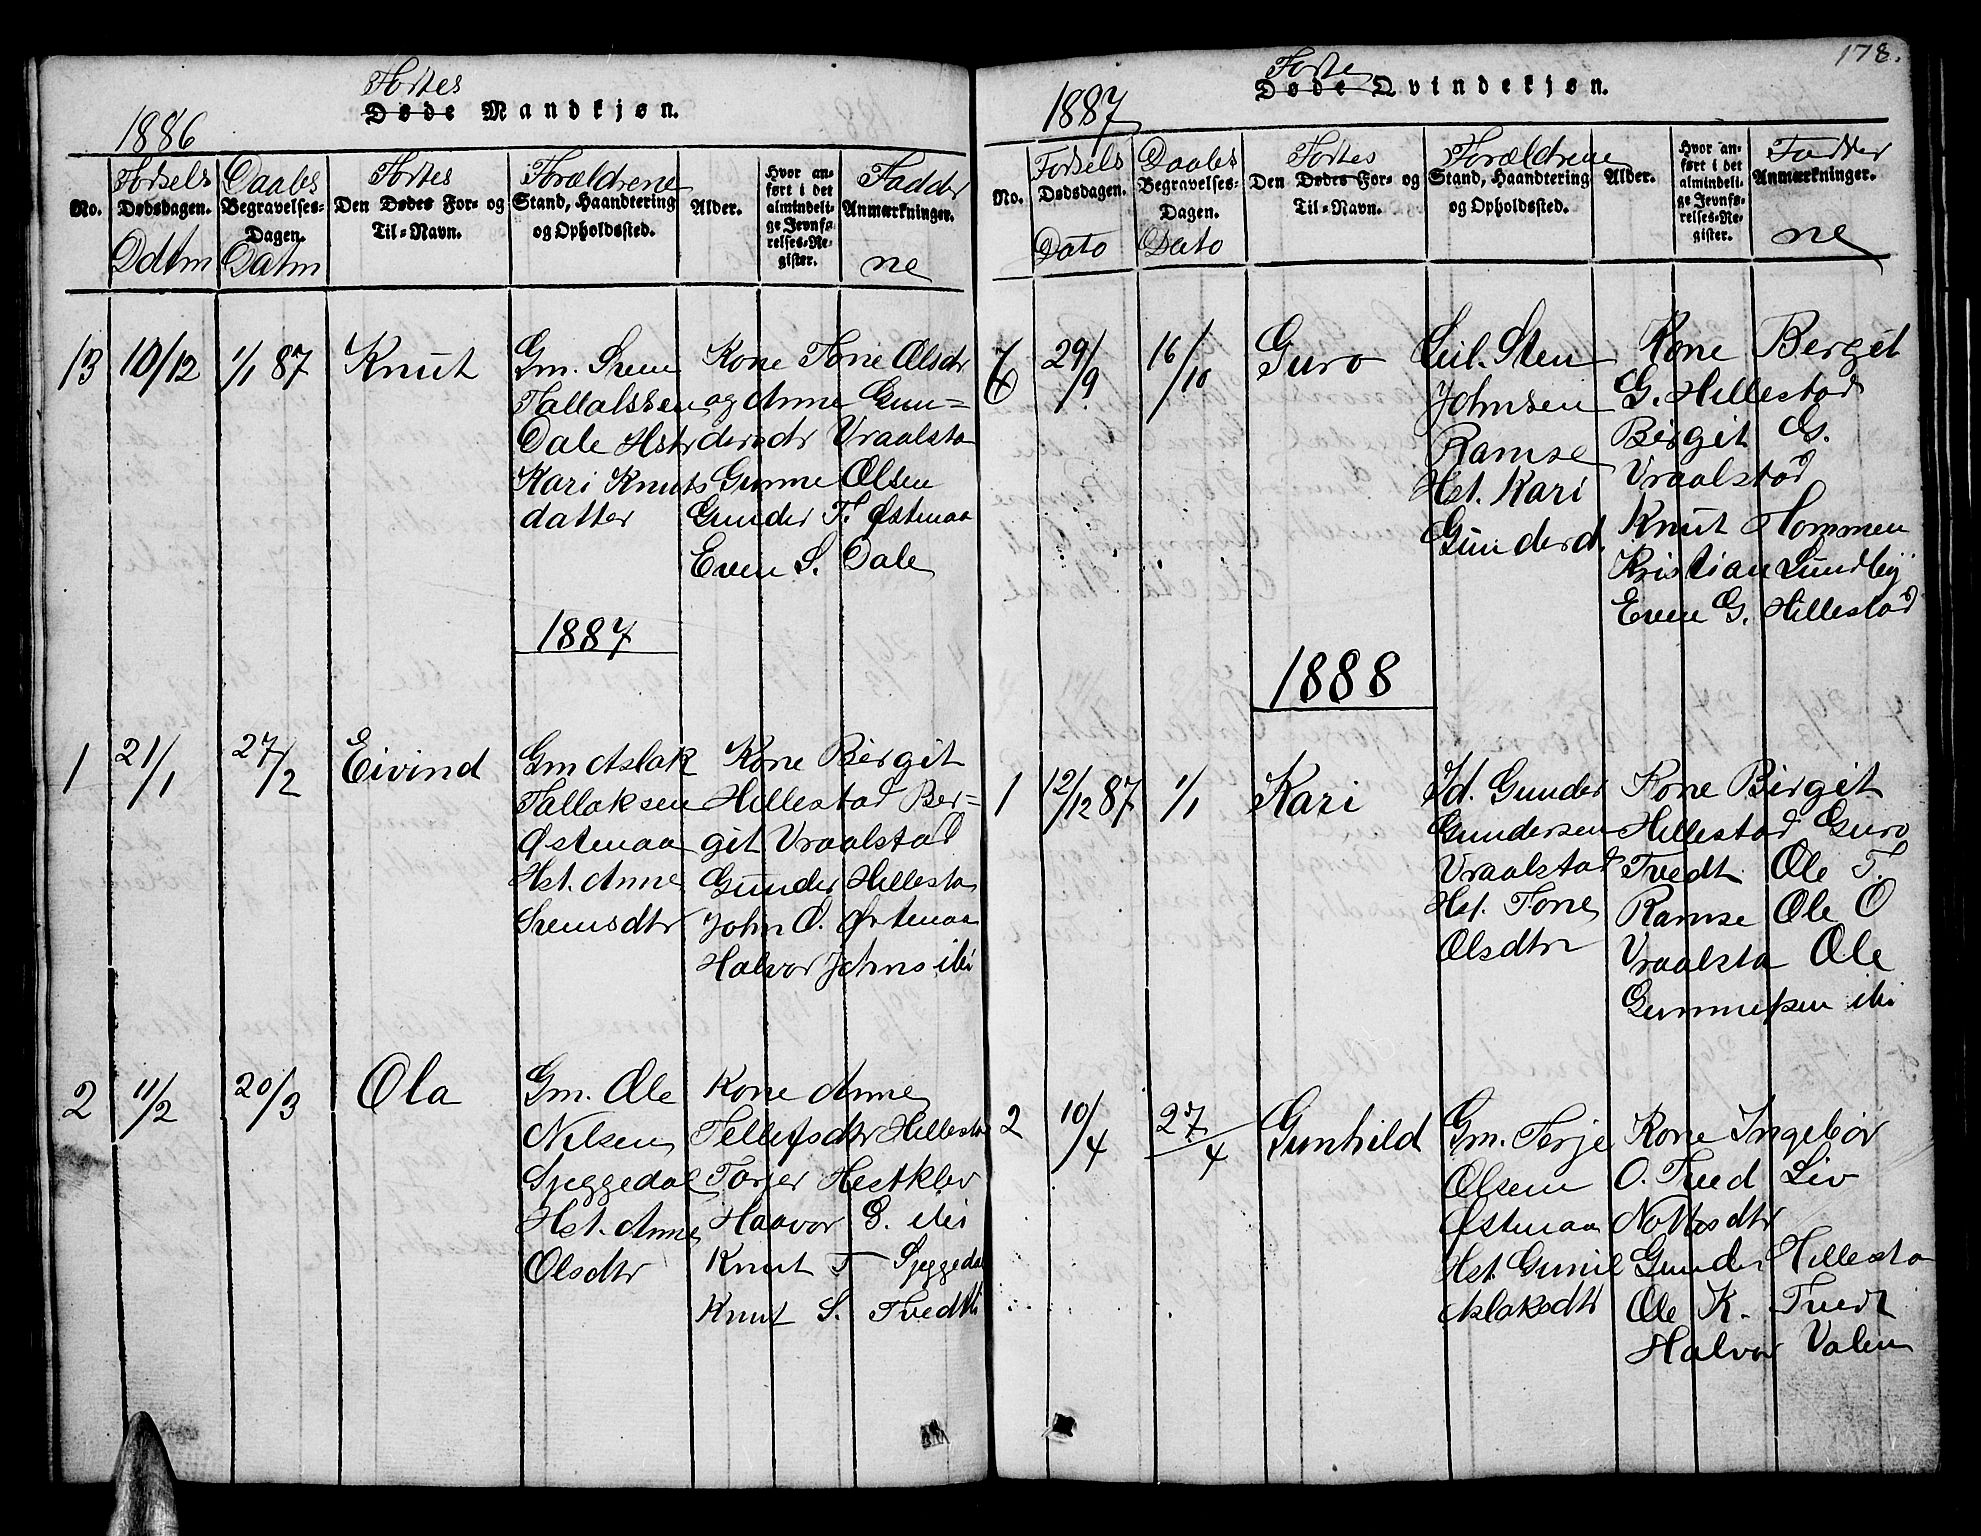 Fortes
Døde Mandkjøn.
1886
No.
Fødsels
Dødsdagen.
Ddtm
Daabs
Begravelses-
Dagen.
Datm
Fortes
Den Dødes For- og
Til-Navn.
Forældrene
Stand, Haandtering
og Opholdssted.
Alder.
Hvor an-
ført i det
almindeli-
ge Jevnfø-
relses-Re-
gister.
Fadder
Anmærkninger.
ne
13 10/12 1/1 87 Knut
Gm. Sven
Tallakssen
Dale Hstr
Kari Knuts
datter
Kone Tone Olsdr
og Anne Gun=
dersdr Vraalsta
Gunne Olsen
Gunder T. Østenaa
Even S. Dale
1887
1 21/1 27/2 Eivind
Gm Aslak
Talloksen
Østenaa
Hst. Anne
Svensdtr
Kone Birgit
Hillestad Ber=
git Vraalstad
Gunder Hillesta
John O. Østenaa
Halvor Johns ibi
2 11/2 20/3 Ola
Gm. Ole
Nilsen
Sjeggedal
Hst. Anne
Olsdtr
Kone Anne
Tellefsdtr Hillesta
Tarjer Hestklev
Haavor G. ibi
Knut T Sjeggedal
Knut S. Tvedt
178.
Forte
Døde Qvindekjøn.
1887
No.
Fødsels
Dødsdagen.
Dato
Daabs
Begravelses-
Dagen.
Dato
Fortes
Den Dødes For- og
Til-Navn.
Forældrene
Stand, Haandtering
og Opholdssted.
Alder.
Hvor an-
ført i det
almindeli-
ge Jevnfø-
relses-Re-
gister.
Fadder
Anmærkninger.
ne
29/9 16/10 Guro
Leil. Sten
Johnsen
Ramse
Hst. Kari
Gunderd.
Kone Bergit
G. Hillestad
Birgit G.
Vraalstad
Knut Hommen
Kristian Lundby
Even G. Hillestad
1888
1 12/12 87 1/1 Kari
Id. Gunder
Gundersen
Vraalstad
Hst. Tone
Olsdtr
Kone Birgit
Hillestad Guro
Tvedt Ole T.
Ramse Ole O
Vraalsta Ole
Gunnufsen ibi
2 10/4 27/4 Gunhild
Gm. Terje
Olsen
Østenaa
Hst. Gunil
Aslaksdtr
Kone Ingebor
O. Tved Liv
Nottosdtr
Gunder Hillesta
Ole K. Tvedt
Halvor Valen